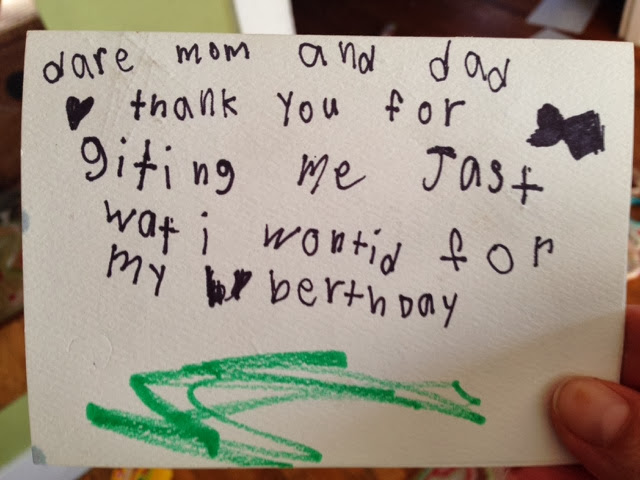 dare mom and dad
thank you for
gifing me Jast
wat i wontid for
my berthday